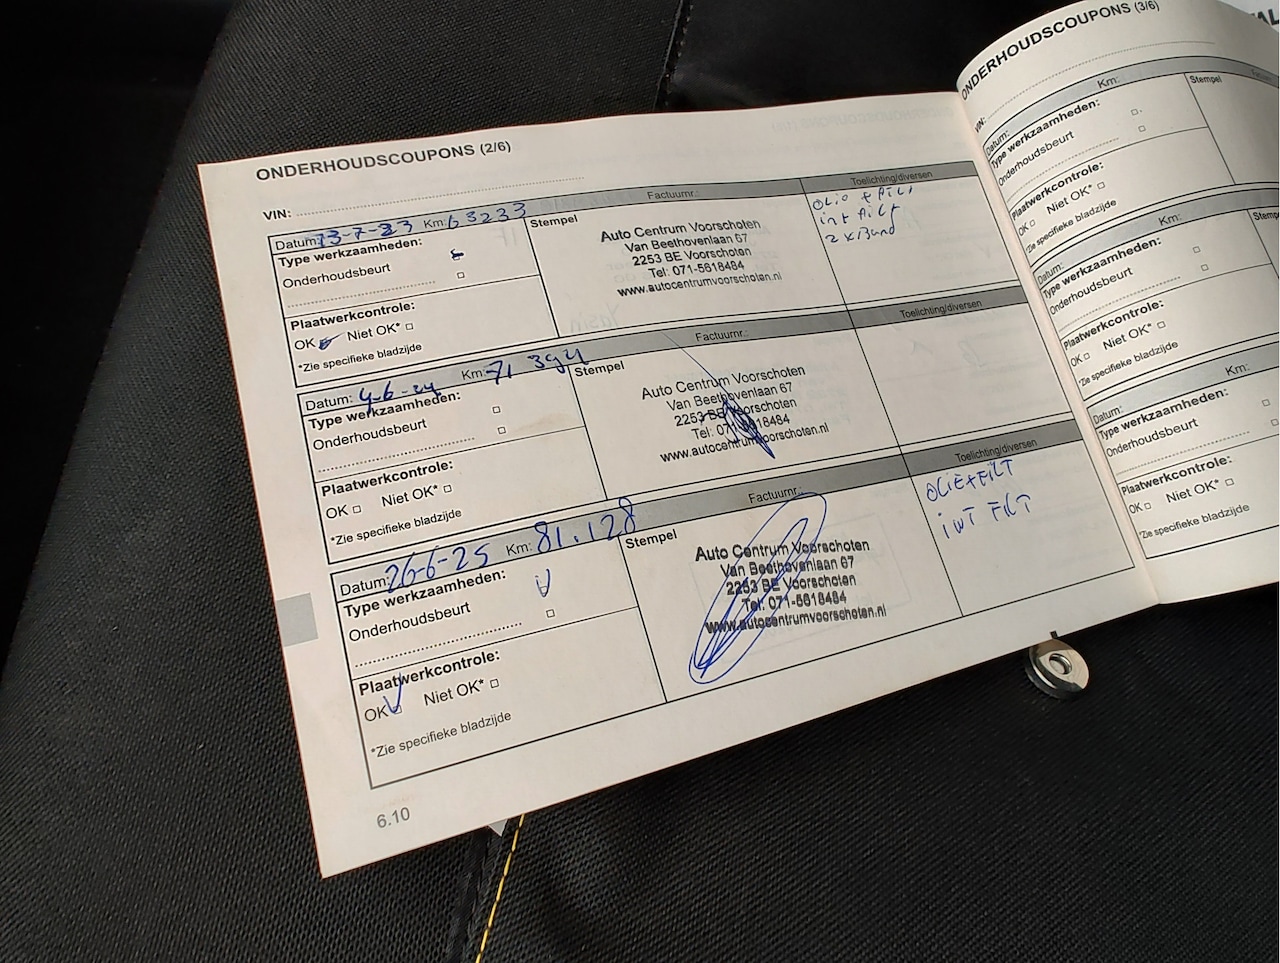 ONDERHOUDSCOUPONS (2/6)
VIN:
Datum: 13-7-23 Km: 63233
Factuurnr.:
Toelichting/diversen
Type werkzaamheden:
Onderhoudsbeurt
Plaatwerkcontrole:
OK Niet OK*
*Zie specifieke bladzijde
Stempel
Auto Centrum Voorschoten
Van Beethovenlaan 67
2253 BE Voorschoten
Tel: 071-5618484
www.autocentrumvoorschoten.nl
olie + filt
int filt
2 x Band
Datum: 4-6-24 Km: 71 394
Factuurnr.:
Toelichting/diversen
Type werkzaamheden:
Onderhoudsbeurt
Plaatwerkcontrole:
OK Niet OK*
*Zie specifieke bladzijde
Stempel
Auto Centrum Voorschoten
Van Beethovenlaan 67
2253 BE Voorschoten
Tel: 071-5618484
www.autocentrumvoorschoten.nl
Datum: 26-6-25 Km: 81.128
Factuurnr.:
Toelichting/diversen
Type werkzaamheden:
Onderhoudsbeurt
Plaatwerkcontrole:
OK Niet OK*
*Zie specifieke bladzijde
Stempel
Auto Centrum Voorschoten
Van Beethovenlaan 67
2253 BE Voorschoten
Tel: 071-5618484
www.autocentrumvoorschoten.nl
OLIE+FILT
INT FILT
6.10
ONDERHOUDSCOUPONS (3/6)
VIN:
Datum: Km:
Type werkzaamheden:
Onderhoudsbeurt
Plaatwerkcontrole:
OK Niet OK*
*Zie specifieke bladzijde
Stempel
Datum: Km:
Type werkzaamheden:
Onderhoudsbeurt
Plaatwerkcontrole:
OK Niet OK*
*Zie specifieke bladzijde
Datum: Km:
Type werkzaamheden:
Onderhoudsbeurt
Plaatwerkcontrole:
OK Niet OK*
*Zie specifieke bladzijde